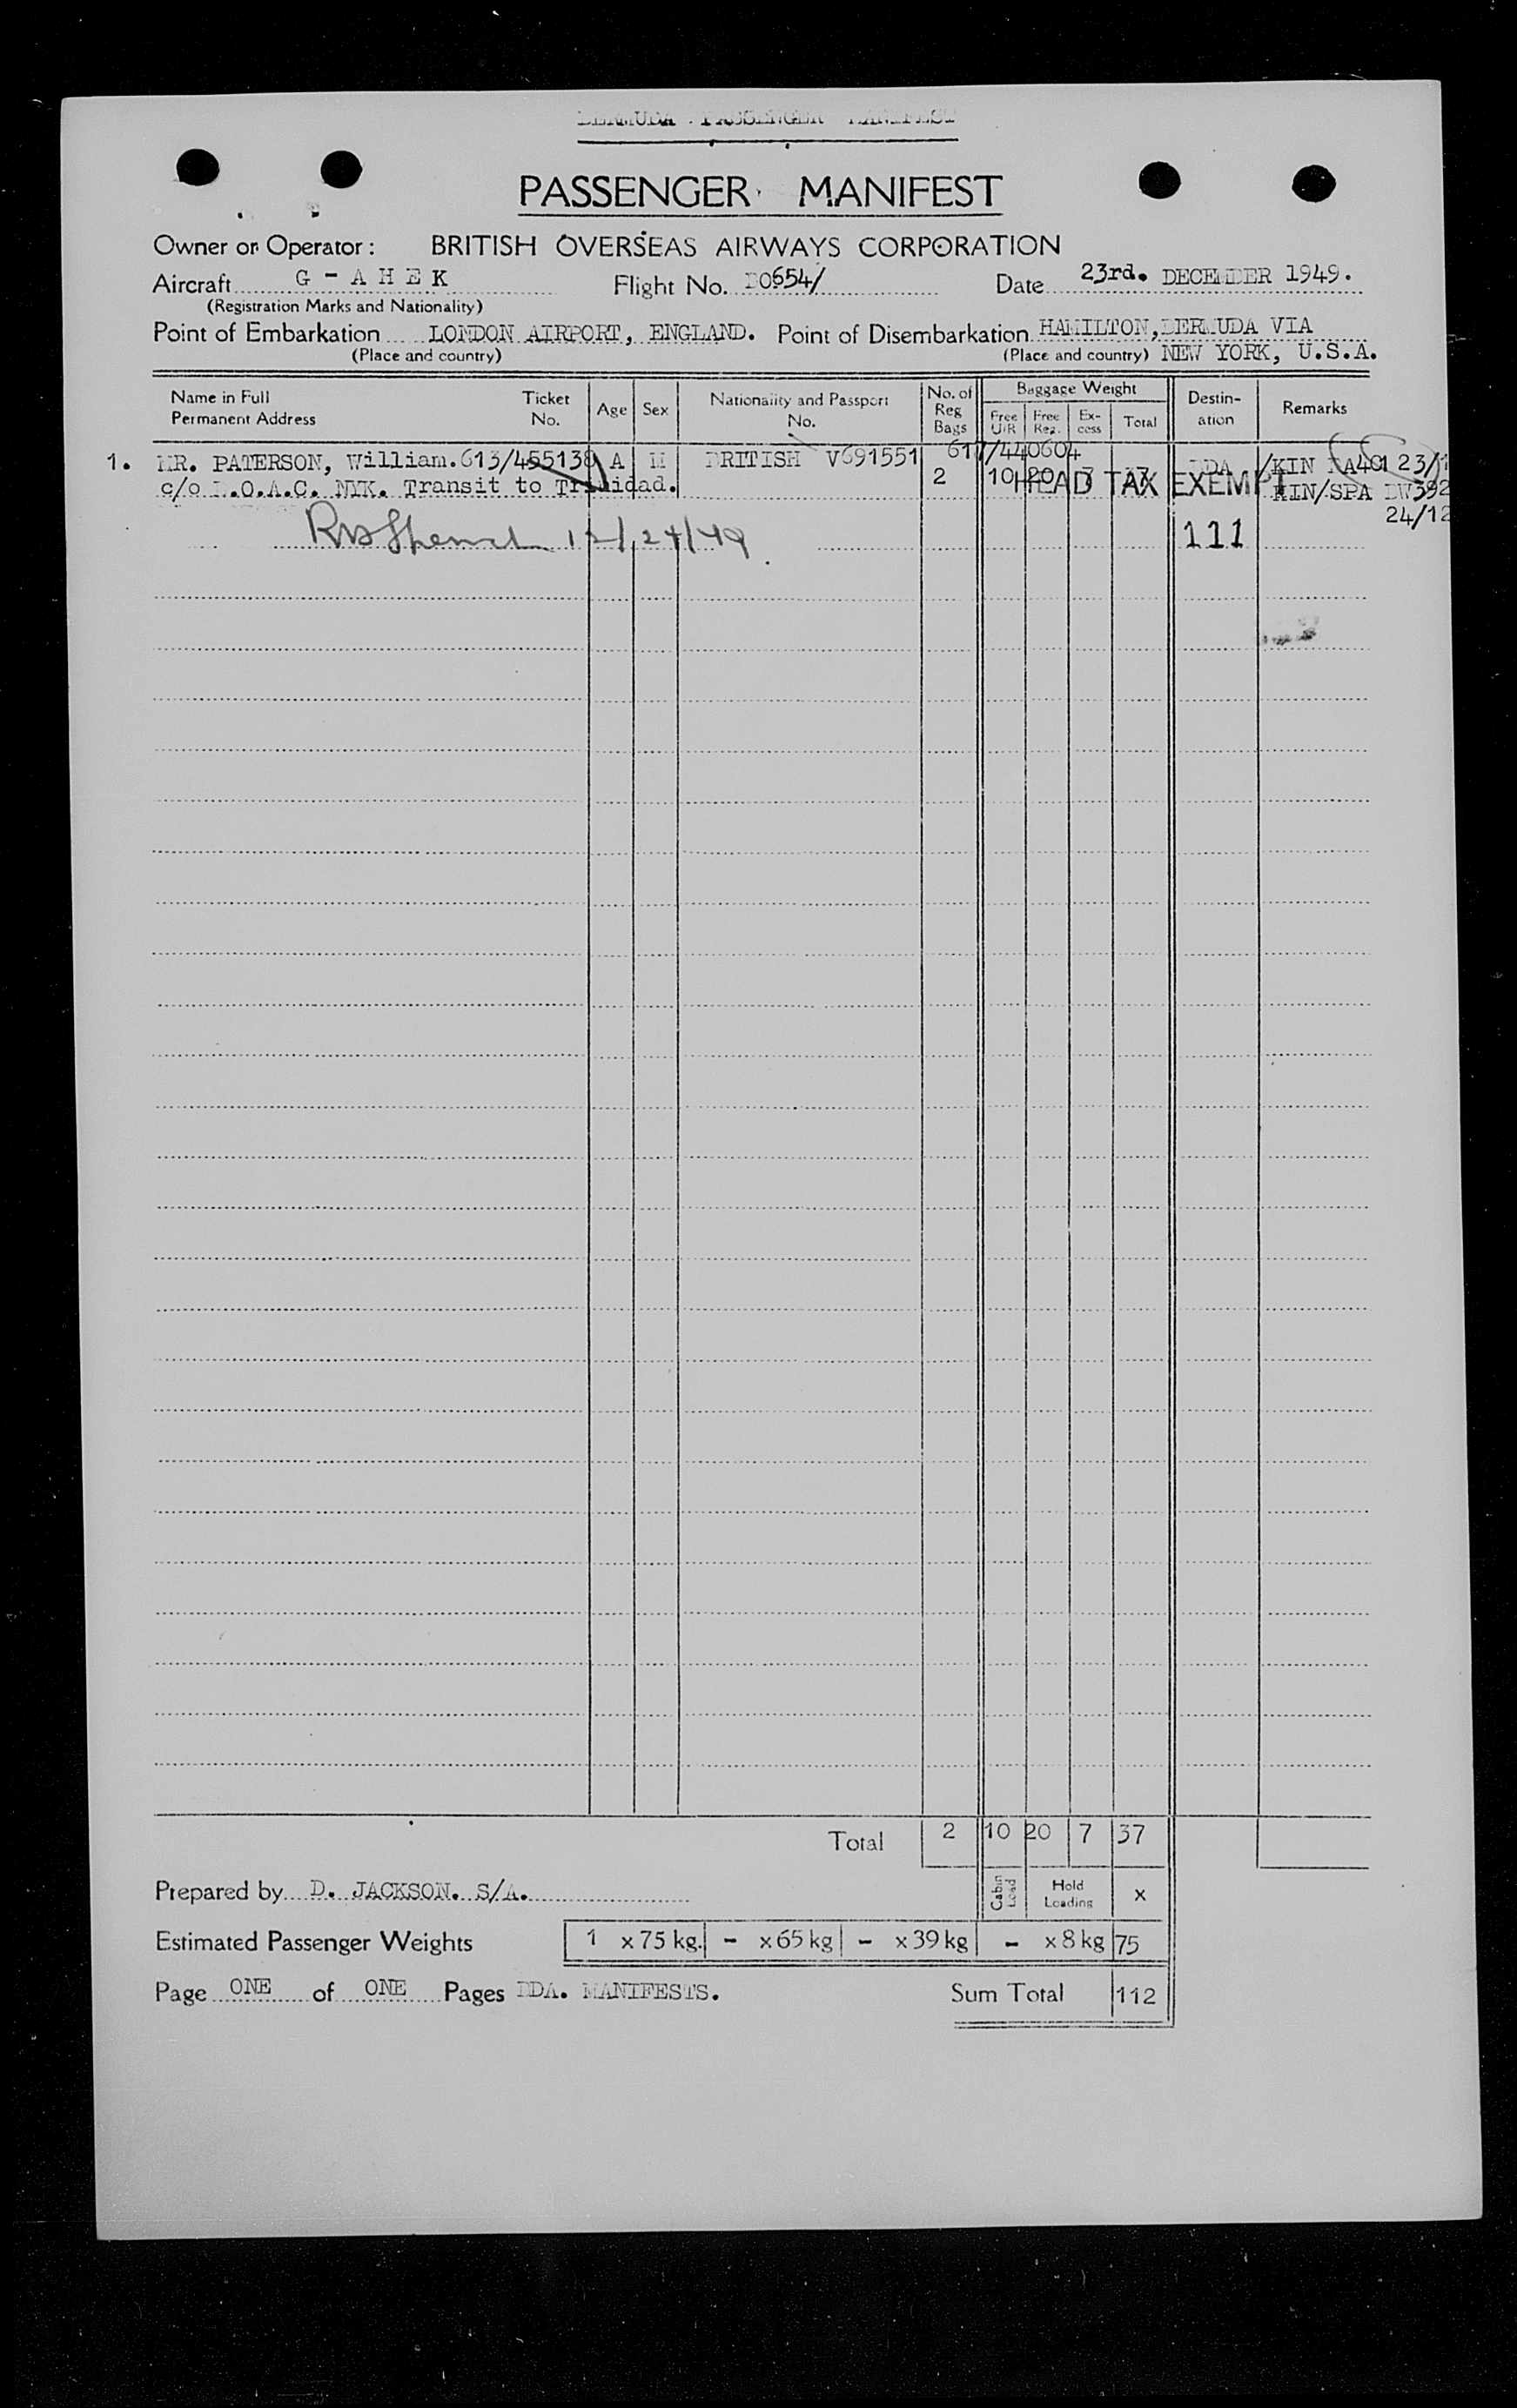 BERMUDA PASSENGER MANIFEST
PASSENGER MANIFEST
Owner or Operator: BRITISH OVERSEAS AIRWAYS CORPORATION
Aircraft G - A H E K Flight No. BO654/ Date 23rd. DECEMBER 1949.
(Registration Marks and Nationality)
Point of Embarkation LONDON AIRPORT, ENGLAND. Point of Disembarkation HAMILTON, BERMUDA VIA
(Place and country) (Place and country) NEW YORK, U.S.A.
Name in Full Ticket Age Sex Nationality and Passport No. of Baggage Weight Destin- Remarks
Permanent Address No. No. Reg Bags Free U/R Free Reg. Ex- cess Total ation
617/440604
1. MR. PATERSON, William. 613/455138 A M BRITISH V691551 BDA /KIN 23/1
c/o B.O.A.C. NYK. Transit to Trinidad. 2 10 20 7 37 HEAD TAX EXEMPT KIN/SPA BW392
24/12
12/24/49 111
Total 2 10 20 7 37
Prepared by D. JACKSON. S/A. Cabin Load Hold Loading x
Estimated Passenger Weights 1 x 75 kg. - x 65 kg - x 39 kg - x 8 kg 75
Page ONE of ONE Pages BDA. MANIFESTS. Sum Total 112